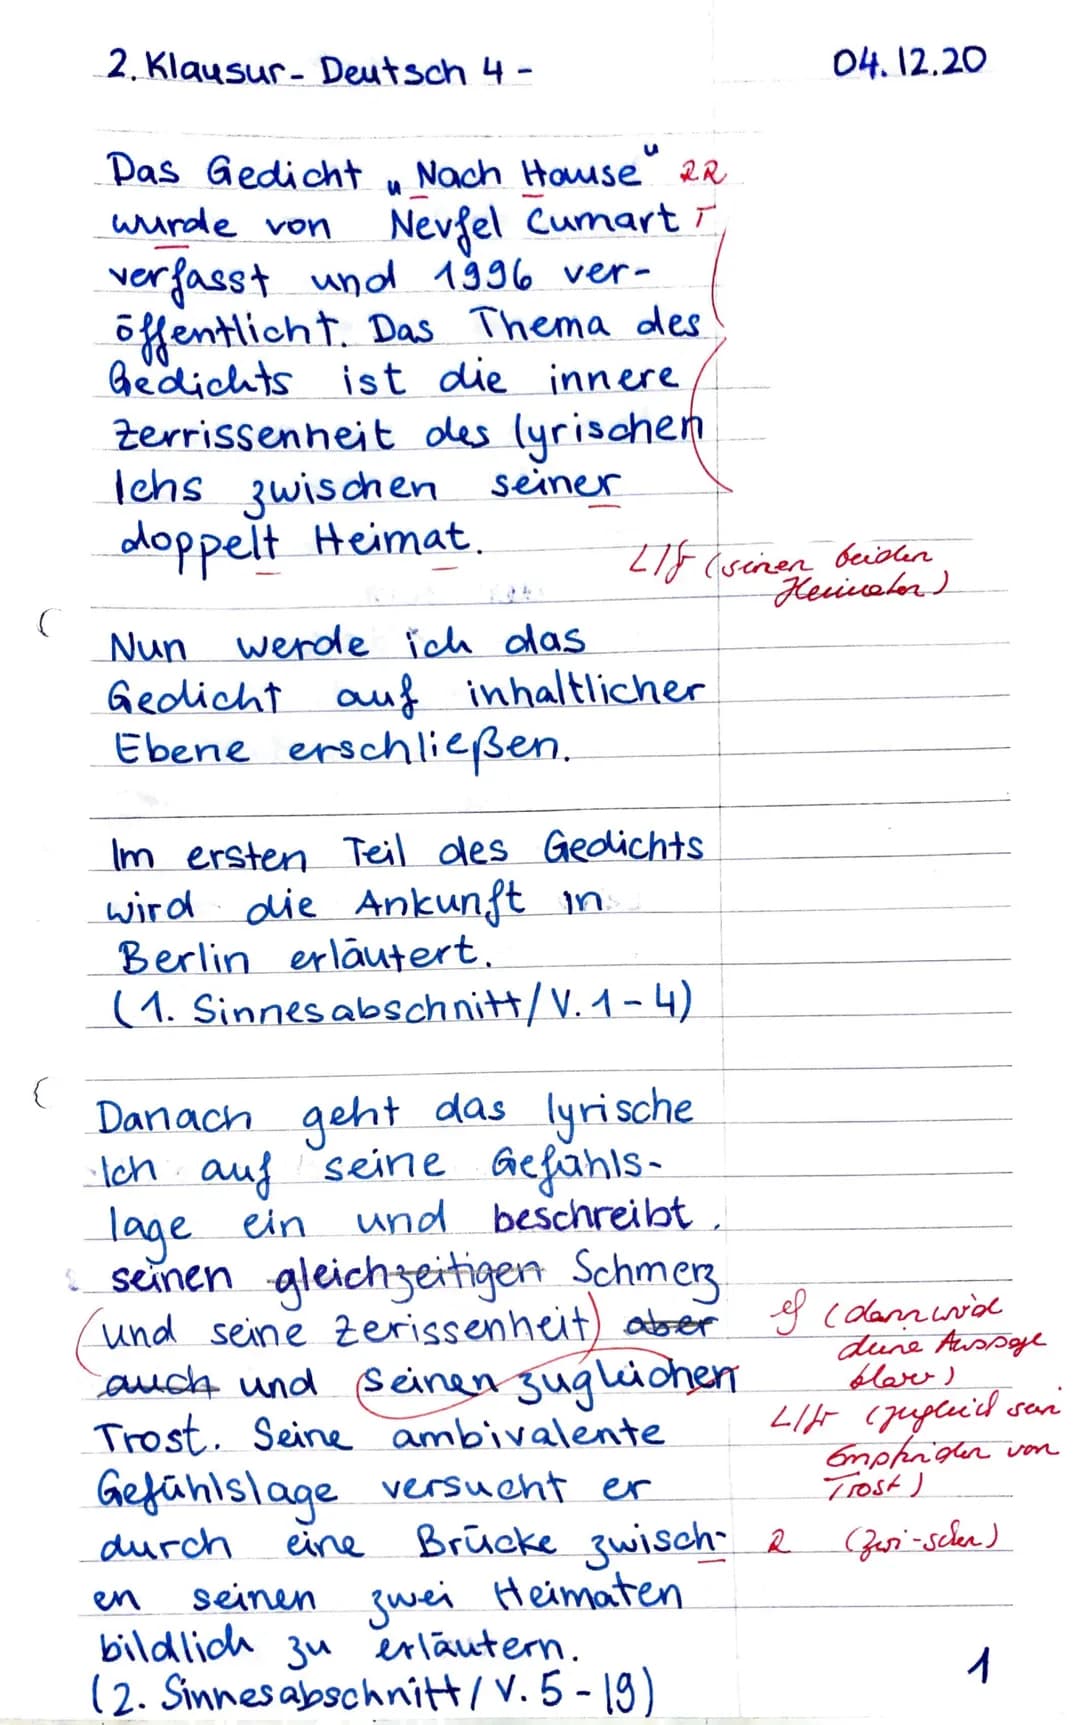 2. Klausur - Deutsch 4 - 04.12.20
Das Gedicht „Nach Hause" RR
wurde von Nevfel Cumart T
verfasst und 1996 ver-
öffentlicht. Das Thema des
Gedichts ist die innere
Zerrissenheit des lyrischen
Ichs zwischen seiner
doppelt Heimat.
(seinen beiden
Heimaten)
Nun werde ich das
Gedicht auf inhaltlicher
Ebene erschließen.
Im ersten Teil des Gedichts
wird die Ankunft in
Berlin erläutert.
(1. Sinnesabschnitt/V. 1-4)
Danach geht das lyrische
Ich auf seine Gefühls-
lage ein und beschreibt
seinen gleichzeitigen Schmerz
(und seine Zerissenheit) aber
(dann wird
deine Aussage
klarer)
auch und seinen zugleichen
(zugleich sein
Empfinden von
Trost)
Trost. Seine ambivalente
Gefühlslage versucht er
durch eine Brücke zwisch- R (zwi-schen)
en seinen zwei Heimaten
bildlich zu erläutern.
(2. Sinnesabschnitt/V. 5-19)
1